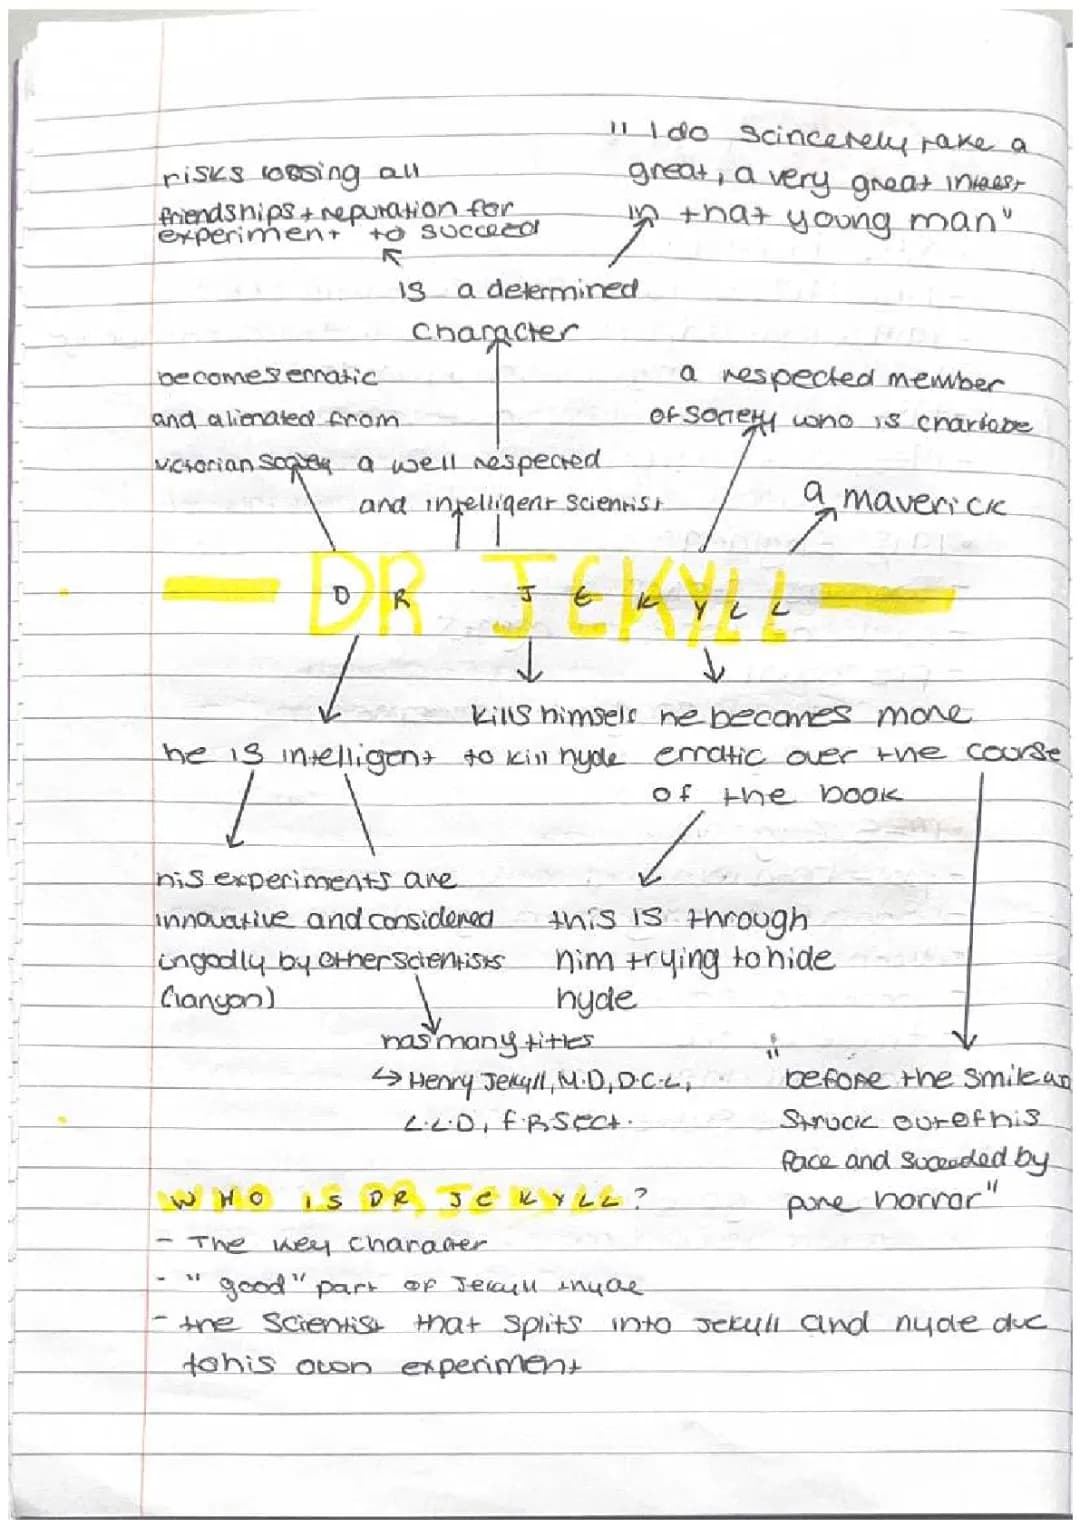 " I do scincerely take a
great, a very great interest
in that young man"
risks lossing all
friendships + reputation for
experiment to succeed
is a determined
character
becomes erratic
and alienated from
victorian society
a well respected
and intelligent scientist
a respected member
of society who is charitabe
a maverick
DR JEKYLL
he is intelligent
kills himself
to kill hyde
he becomes more
erratic over the course
of the book
his experiments are
innovative and considered
ungodly by other scientists
(lanyon)
this is through
him trying to hide
hyde
has many titles
↳ Henry Jekyll, M.D, D.C.L,
L.L.D, F.R.S ect.
"before the smile was
struck out of his
face and suceeded by
pure horror"
WHO IS DR JEKYLL?
- The key character
- "good" part of Jekyll + hyde
- the scientist that splits into Jekyll and hyde due
to his own experiment